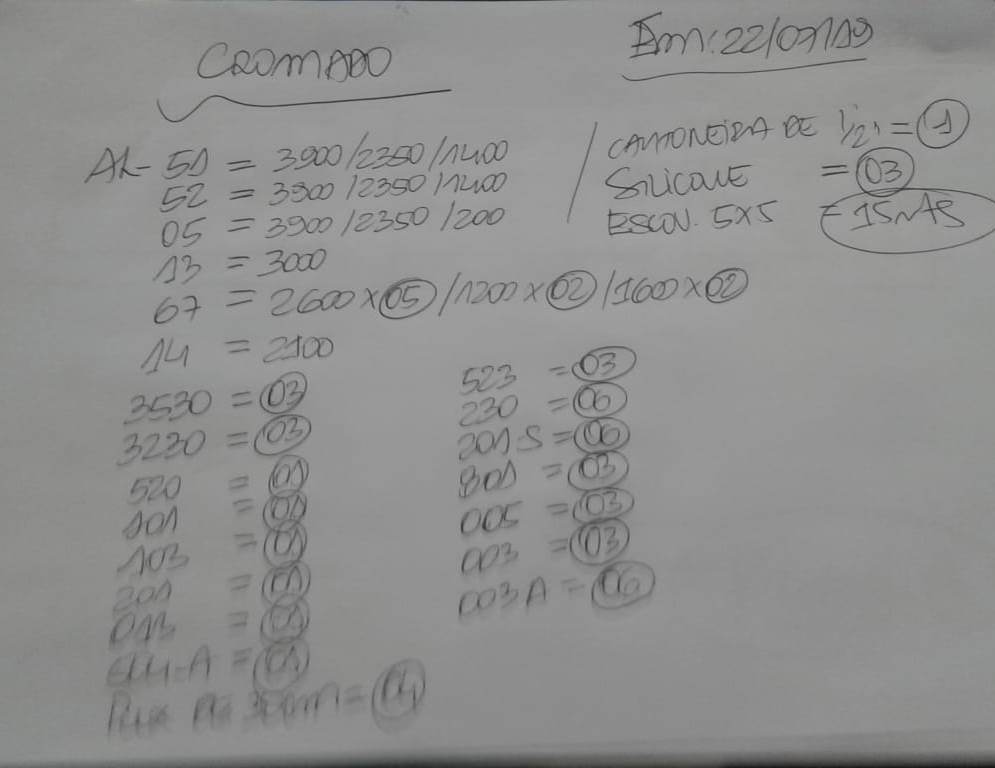 CROMADO
Em: 22/07/19
AL- 51 = 3900/2350/1400
52 = 3900/2350/1400
05 = 3900/2350/200
13 = 3000
67 = 2600 x 05 /1200 x 02 /1600 x 02
14 = 2100
3530 = 03
3230 = 03
520 = 01
101 = 01
103 = 01
201 = 01
013 = 01
-A = 01
=
CANTONEIRA DE 1/2" = 1
SILICONE = 03
ESCOV. 5X5 = 15MTS
523 = 03
230 = 06
201-S = 06
801 = 03
005 = 03
003 = 03
003A = 06